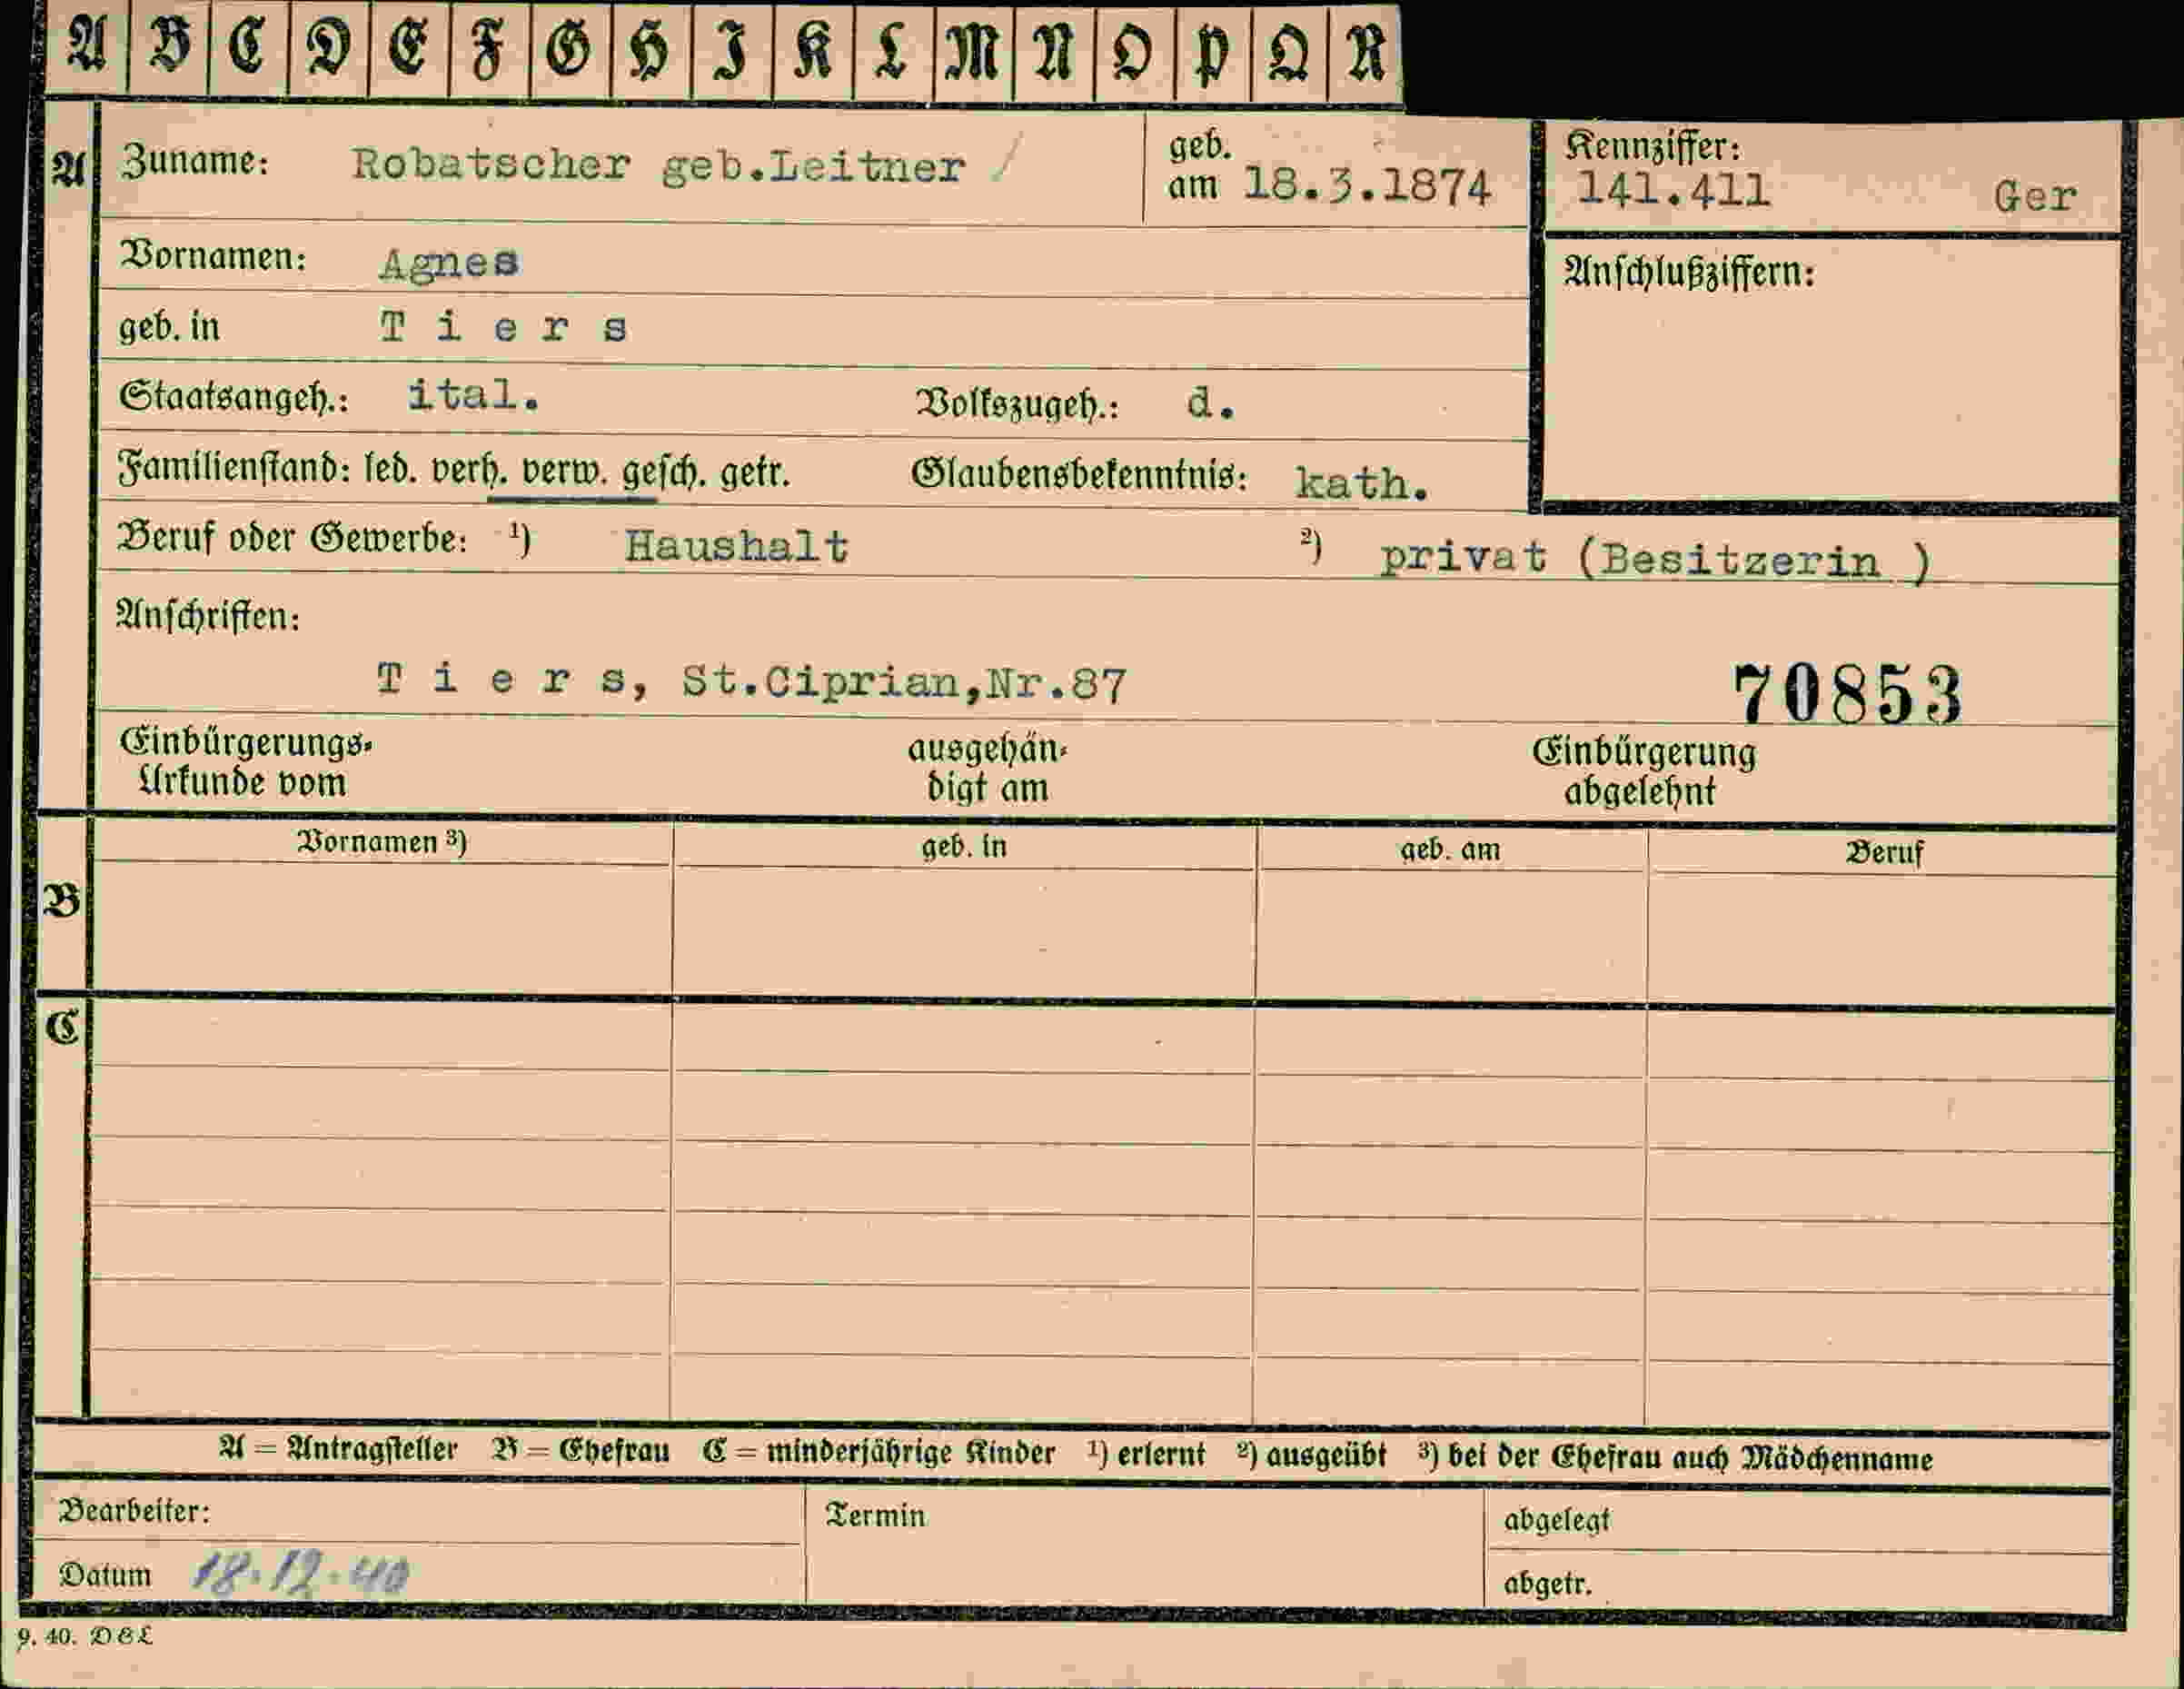 A B C D E F G H I K L M N O P Q R
A Zuname: Robatscher geb.Leitner / geb. am 18.3.1874
Kennziffer: 141.411 Ger
Vornamen: Agnes
Anschlußziffern:
geb. in T i e r s
Staatsangeh.: ital. Volkszugeh.: d.
Familienstand: led. verh. verw. gesch. getr. Glaubensbekenntnis: kath.
Beruf oder Gewerbe: ¹) Haushalt ²) privat (Besitzerin )
Anschriften:
T i e r s, St.Ciprian,Nr.87 70853
Einbürgerungs- ausgehän- Einbürgerung
Urkunde vom digt am abgelehnt
Vornamen ³) geb. in geb. am Beruf
B
C
A = Antragsteller B = Ehefrau C = minderjährige Kinder ¹) erlernt ²) ausgeübt ³) bei der Ehefrau auch Mädchenname
Bearbeiter: Termin abgelegt
Datum 18.12.40 abgetr.
9. 40. DBL